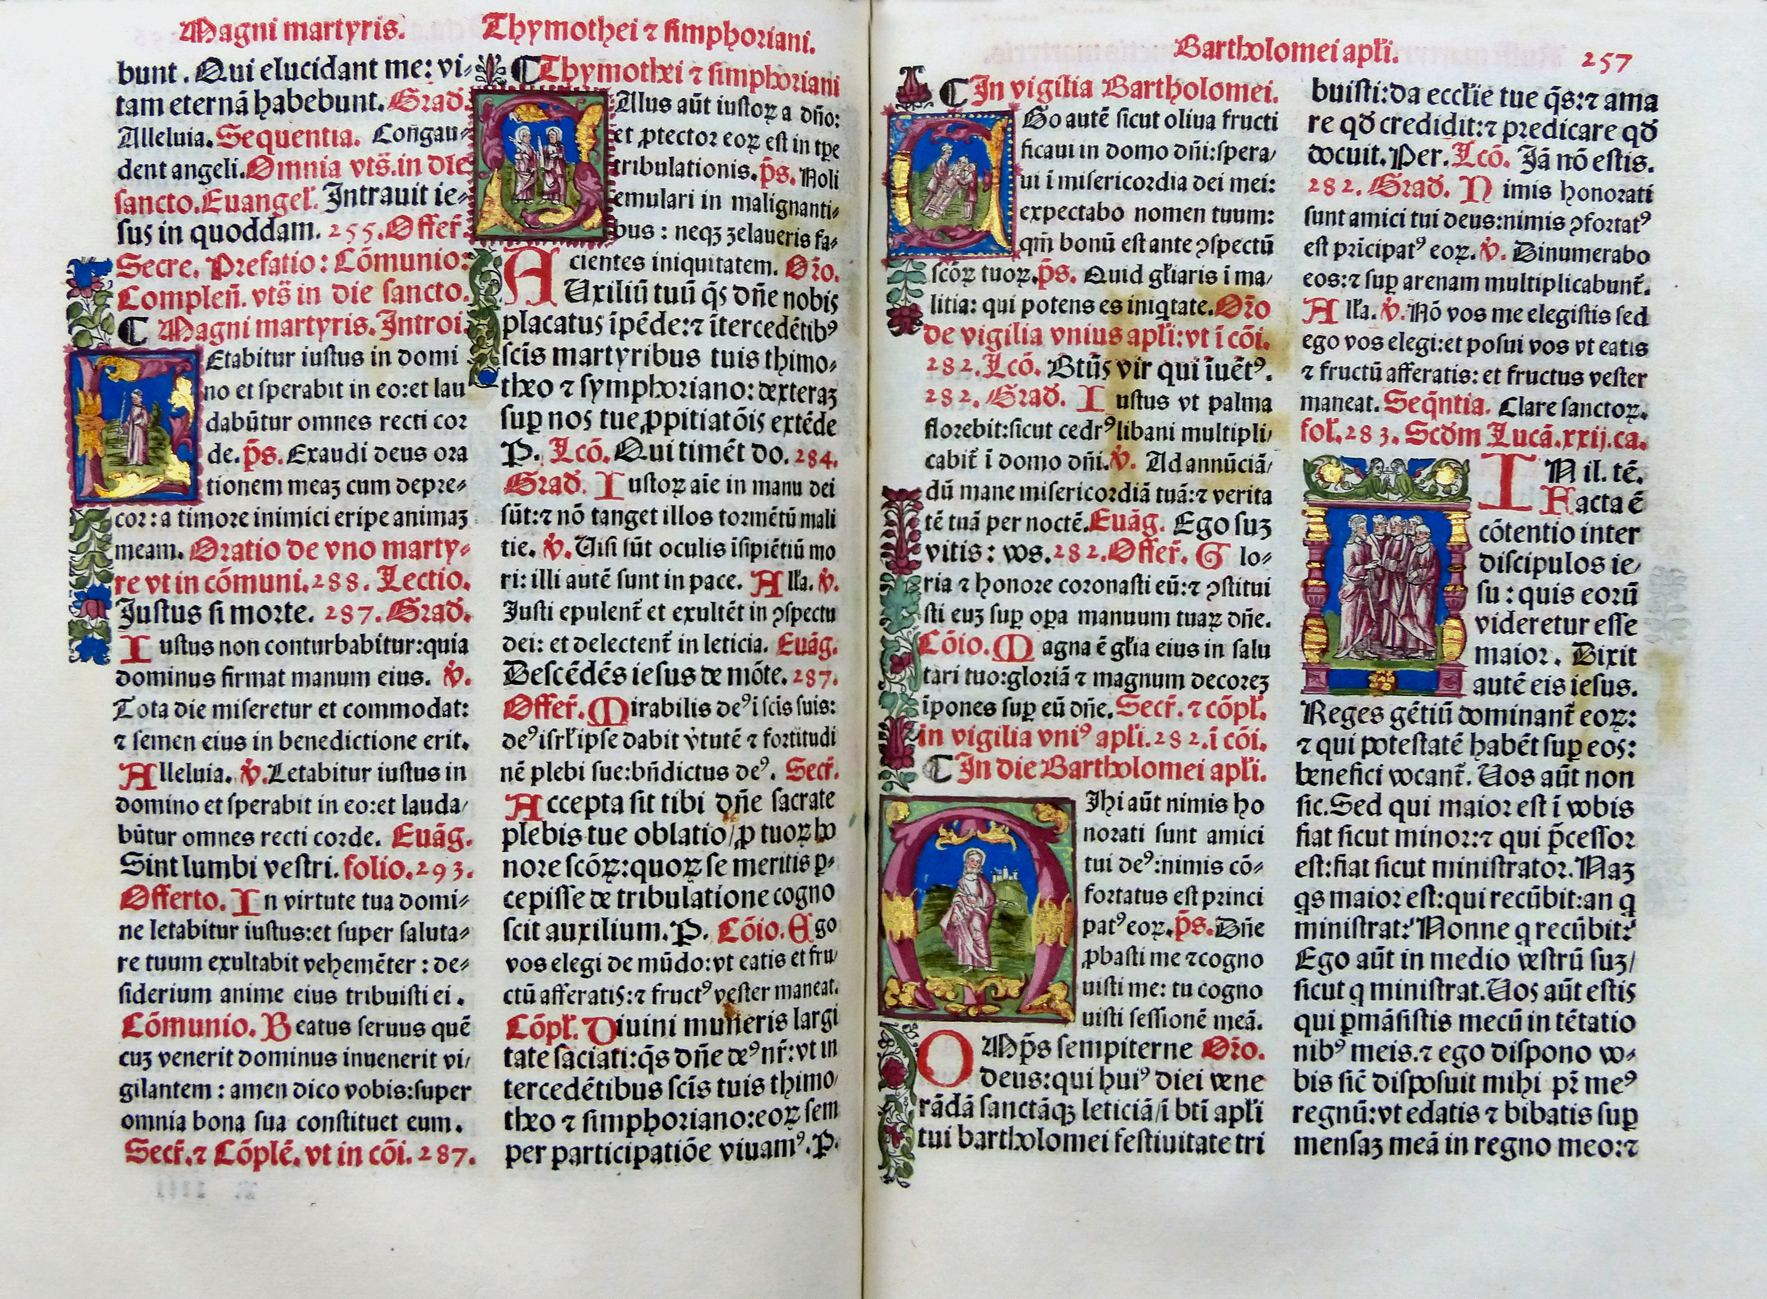 Magni martyris.
bunt. Qui elucidant me: vi⸗
tam eternā habebunt. Grad.
Alleluia. Sequentia. Congau⸗
dent angeli. Omnia vts̄. in die
sancto. Euangel̄. Intrauit ie⸗
sus in quoddam. 255. Offer̄.
Secre. Prefatio: Cōmunio:
Complen̄. vts̄ in die sancto.
¶ Magni martyris. Introi.
LEtabitur iustus in domi
no et sperabit in eo: et lau
dabūtur omnes recti cor
de. p̄s. Exaudi deus ora
tionem meaꝫ cum depre⸗
cor: a timore inimici eripe animaꝫ
meam. Oratio de vno marty⸗
re vt in cōmuni. 288. Lectio.
Iustus si morte. 287. Grad.
Iustus non conturbabitur: quia
dominus firmat manum eius. v̇.
Tota die miseretur et commodat:
⁊ semen eius in benedictione erit.
Alleluia. v̇. Letabitur iustus in
domino et sperabit in eo: et lauda/
būtur omnes recti corde. Euāg.
Sint lumbi vestri. folio. 293.
Offerto. In virtute tua domi⸗
ne letabitur iustus: et super saluta⸗
re tuum exultabit vehemēter: de⸗
siderium anime eius tribuisti ei.
Cōmunio. Beatus seruus quē
cuꝫ venerit dominus inuenerit vi/
gilantem: amen dico vobis: super
omnia bona sua constituet eum.
Secr̄. ⁊ Cōplē. vt in cōi. 287.
Thymothei ⁊ simphoriani.
¶ Thymothei ⁊ simphoriani
SAlus aūt iustoꝝ a dn̄o:
et ꝓtector eoꝝ est in tp̄e
tribulationis. p̄s. Noli
emulari in malignanti⸗
bus: neqꝫ zelaueris fa⸗
cientes iniquitatem. Or̄o.
AUxiliū tuū q̄s dn̄e nobis
placatus īpēde: ⁊ ītercedētibꝰ
scīs martyribus tuis thimo⸗
theo ⁊ symphoriano: dexteraꝫ
suꝑ nos tue ꝓpitiatōis extēde
P. Lcō. Qui timēt do. 284.
Grad. Iustoꝝ aīe in manu dei
sūt: ⁊ nō tanget illos tormētū mali
tie. v̇. Uisi sūt oculis īsipiētiū mo
ri: illi autē sunt in pace. All̄a. v̇.
Iusti epulent̄ et exultēt in ꝯspectu
dei: et delectent̄ in leticia. Euāg.
Descēdēs iesus de mōte. 287.
Offer̄. Mirabilis deꝰ i scīs suis:
deꝰ isrl̄ ipse dabit v̇tutē ⁊ fortitudi
nē plebi sue: bn̄dictus deꝰ. Secr̄.
Accepta sit tibi dn̄e sacrate
plebis tue oblatio/ ꝓ tuoꝝ ho
nore scōꝝ: quoꝝ se meritis ꝑ⸗
cepisse de tribulatione cogno
scit auxilium. P. Cōio. Ego
vos elegi de mūdo: vt eatis et fru/
ctū afferatis: ⁊ fructꝰ vester maneat.
Cōpl̄. Diuini muneris largi
tate saciati: q̄s dn̄e deꝰ nr̄: vt in
tercedētibus scīs tuis thimo/
theo ⁊ simphoriano: eoꝝ sem
per participatiōe viuamꝰ. P.
Bartholomei apl̄i. 257
¶ In vigilia Bartholomei.
EGo autē sicut oliua fructi
ficaui in domo dn̄i: spera/
ui ī misericordia dei mei:
expectabo nomen tuum:
qm̄ bonū est ante ꝯspectū
scōꝝ tuoꝝ. p̄s. Quid gl̄iaris ī ma/
litia: qui potens es iniqtate. Or̄o
de vigilia vnius apl̄i: vt ī cōi.
282. Lcō. Btūs vir qui īuētꝰ.
282. Grad. Iustus vt palma
florebit: sicut cedrꝰ libani multipli/
cabit̄ ī domo dn̄i. v̇. Ad annūciā/
dū mane misericordiā tuā: ⁊ verita
tē tuā per noctē. Euāg. Ego suꝫ
vitis: vos. 282. Offer̄. Glo⸗
ria ⁊ honore coronasti eū: ⁊ ꝯstitui
sti euꝫ suꝑ oꝑa manuum tuaꝝ dn̄e.
Cōio. Magna ē gl̄ia eius in salu
tari tuo: gloriā ⁊ magnum decoreꝫ
īpones suꝑ eū dn̄e. Secr̄. ⁊ cōpl̄.
in vigilia vniꝰ apl̄i. 282. ī cōi.
¶ In die Bartholomei apl̄i.
MIhi aūt nimis ho
norati sunt amici
tui deꝰ: nimis cō⸗
fortatus est princi
patꝰ eoꝝ. p̄s. Dn̄e
ꝓbasti me ⁊ cogno
uisti me: tu cogno
uisti sessionē meā.
OMp̄s sempiterne Or̄o.
deus: qui huiꝰ diei vene
rādā sanctāqꝫ leticiā/ ī bt̄i apl̄i
tui bartholomei festiuitate tri
buisti: da eccl̄ie tue q̄s: ⁊ ama
re qd̄ credidit: ⁊ predicare qd̄
docuit. Per. Lcō. Iā nō estis.
282. Grad. Nimis honorati
sunt amici tui deus: nimis ꝯfortatꝰ
est prīcipatꝰ eoꝝ. v̇. Dinumerabo
eos: ⁊ suꝑ arenam multiplicabunt̄.
All̄a. v̇. Nō vos me elegistis sed
ego vos elegi: et posui vos vt eatis
⁊ fructū afferatis: et fructus vester
maneat. Seq̄ntia. Clare sanctoꝝ.
fol. 283. Scd̄m Lucā. xxij. ca.
IN il. tē.
Facta ē
cōtentio inter
discipulos ie/
su: quis eorū
videretur esse
maior. Dixit
autē eis iesus.
Reges gētiū dominant̄ eoꝝ:
⁊ qui potestatē habēt suꝑ eos:
benefici vocant̄. Uos aūt non
sic. Sed qui maior est ī vobis
fiat sicut minor: ⁊ qui p̄cessor
est: fiat sicut ministrator. Naꝫ
qs maior est: qui recūbit: an q
ministrat? Nonne q recūbit?
Ego aūt in medio vestrū suꝫ/
sicut q ministrat. Uos aūt estis
qui ꝑmāsistis mecū in tētatio
nibꝰ meis. ⁊ ego dispono vo⸗
bis sic̄ disposuit mihi pr̄ meꝰ
regnū: vt edatis ⁊ bibatis suꝑ
mensaꝫ meā in regno meo: ⁊